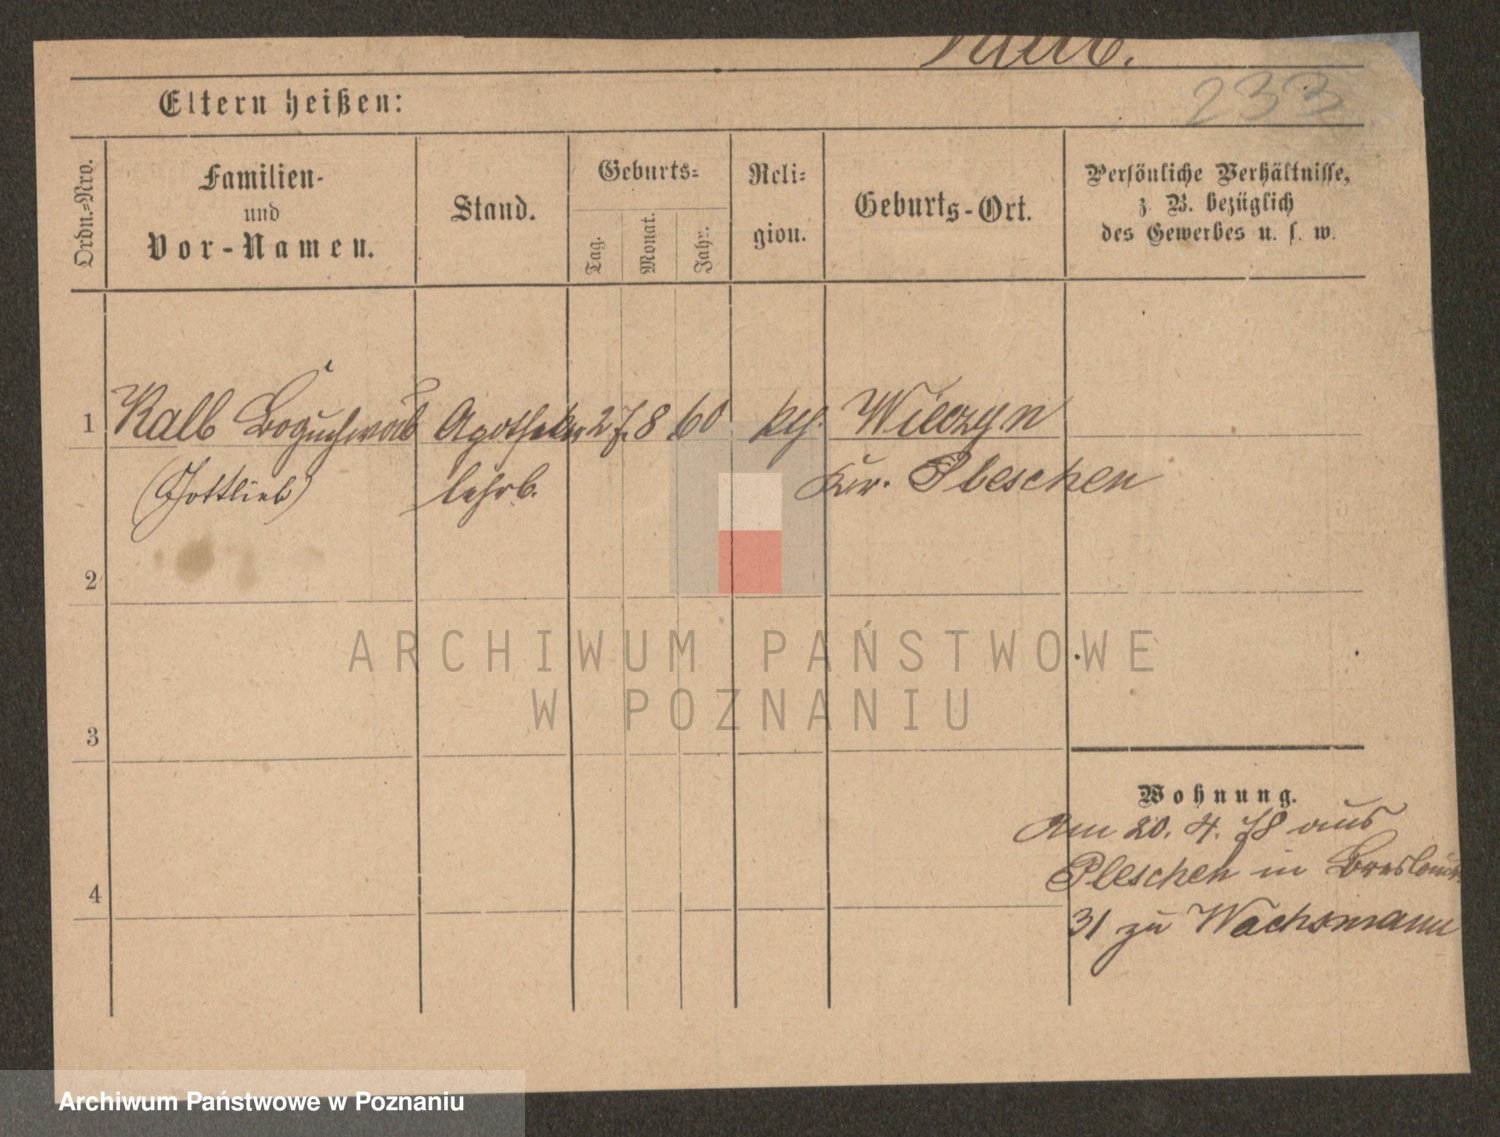 Kalb.
233
Eltern heißen:
Ordn.=Nro.
Familien-
und
Vor-Namen.
Stand.
Geburts=
Tag.
Monat.
Jahr.
Reli=
gion.
Geburts-Ort.
Persönliche Verhältnisse,
z. B. bezüglich
des Gewerbes u. s. w.
1 Kalb Boguchwał Apotheker 27. 8 60 kth. Wieczyn
(Gottlieb) lehrb. Kr. Pleschen
2
3
4
Wohnung.
Am 20. 4. 78 aus
Pleschen in Breslauer
31 zu Wachsmann
ARCHIWUM PAŃSTWOWE
W POZNANIU
Archiwum Państwowe w Poznaniu